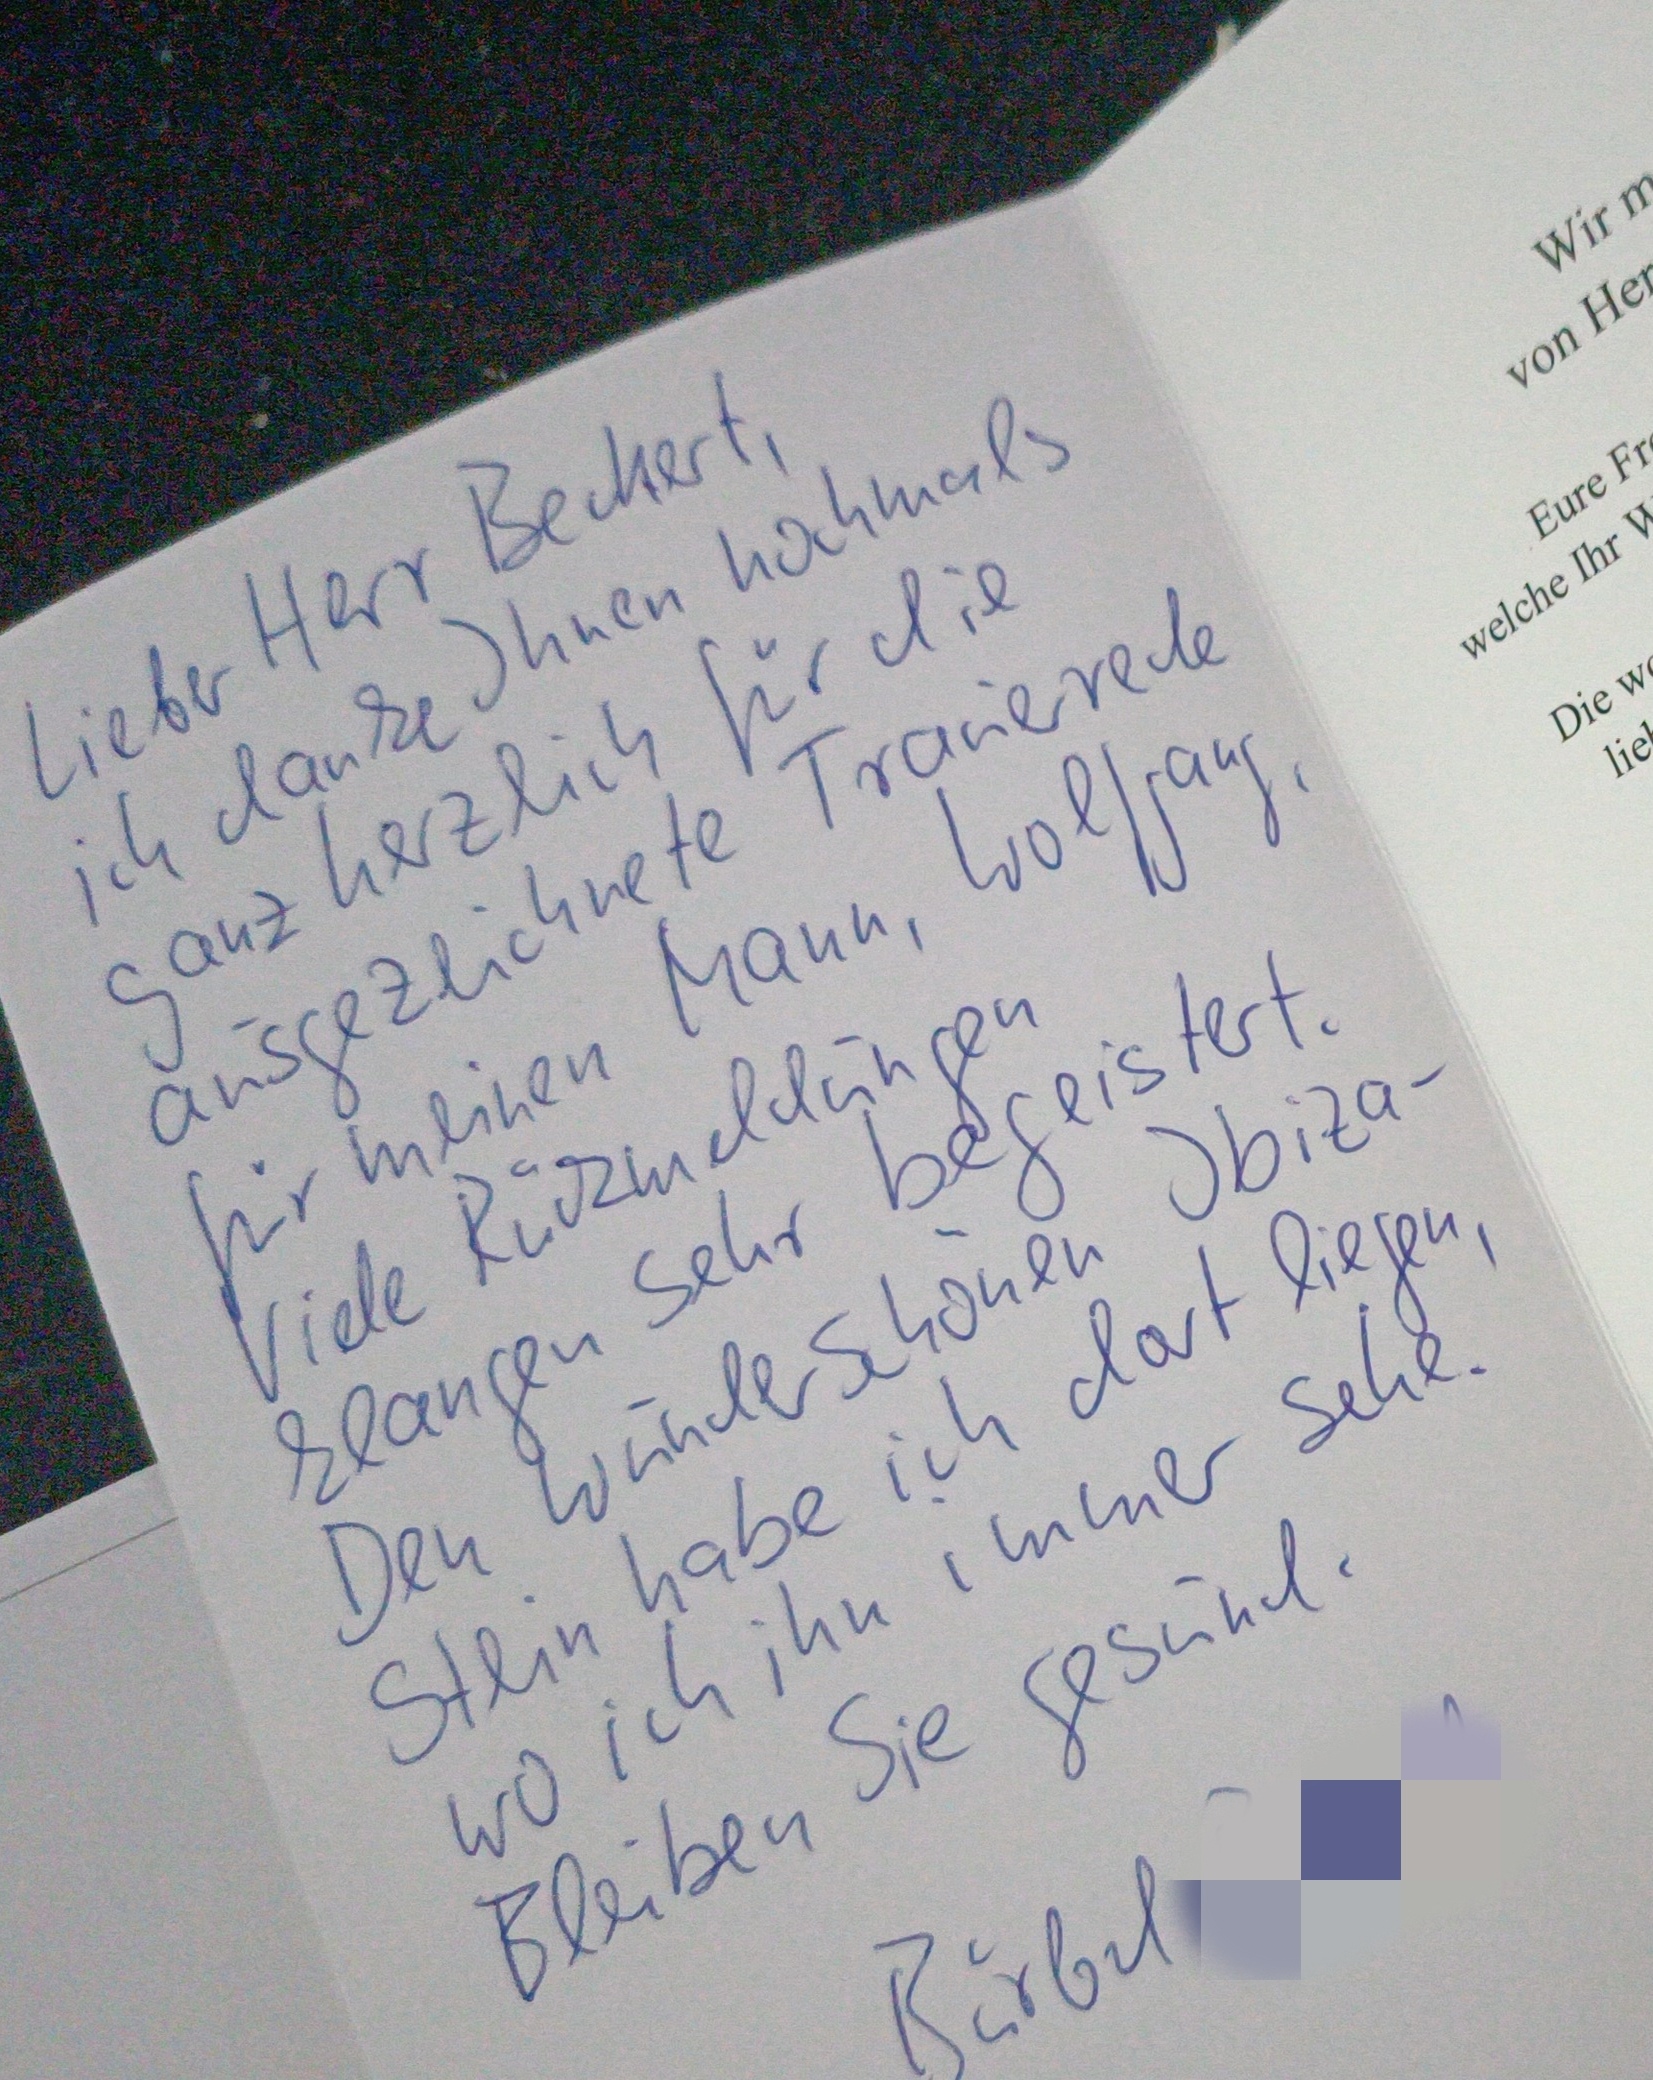 Lieber Herr Beckert,
ich danke Ihnen nochmals
ganz herzlich für die
ausgezeichnete Trauerrede
für meinen Mann, Wolfgang.
Viele Rückmeldungen
klangen sehr begeistert.
Den wunderschönen Ibiza-
Stein habe ich dort liegen,
wo ich ihn immer sehe.
Bleiben Sie gesund.
Bärbel
Wir m
von Her
Eure Fre
welche Ihr W
Die wo
lieb